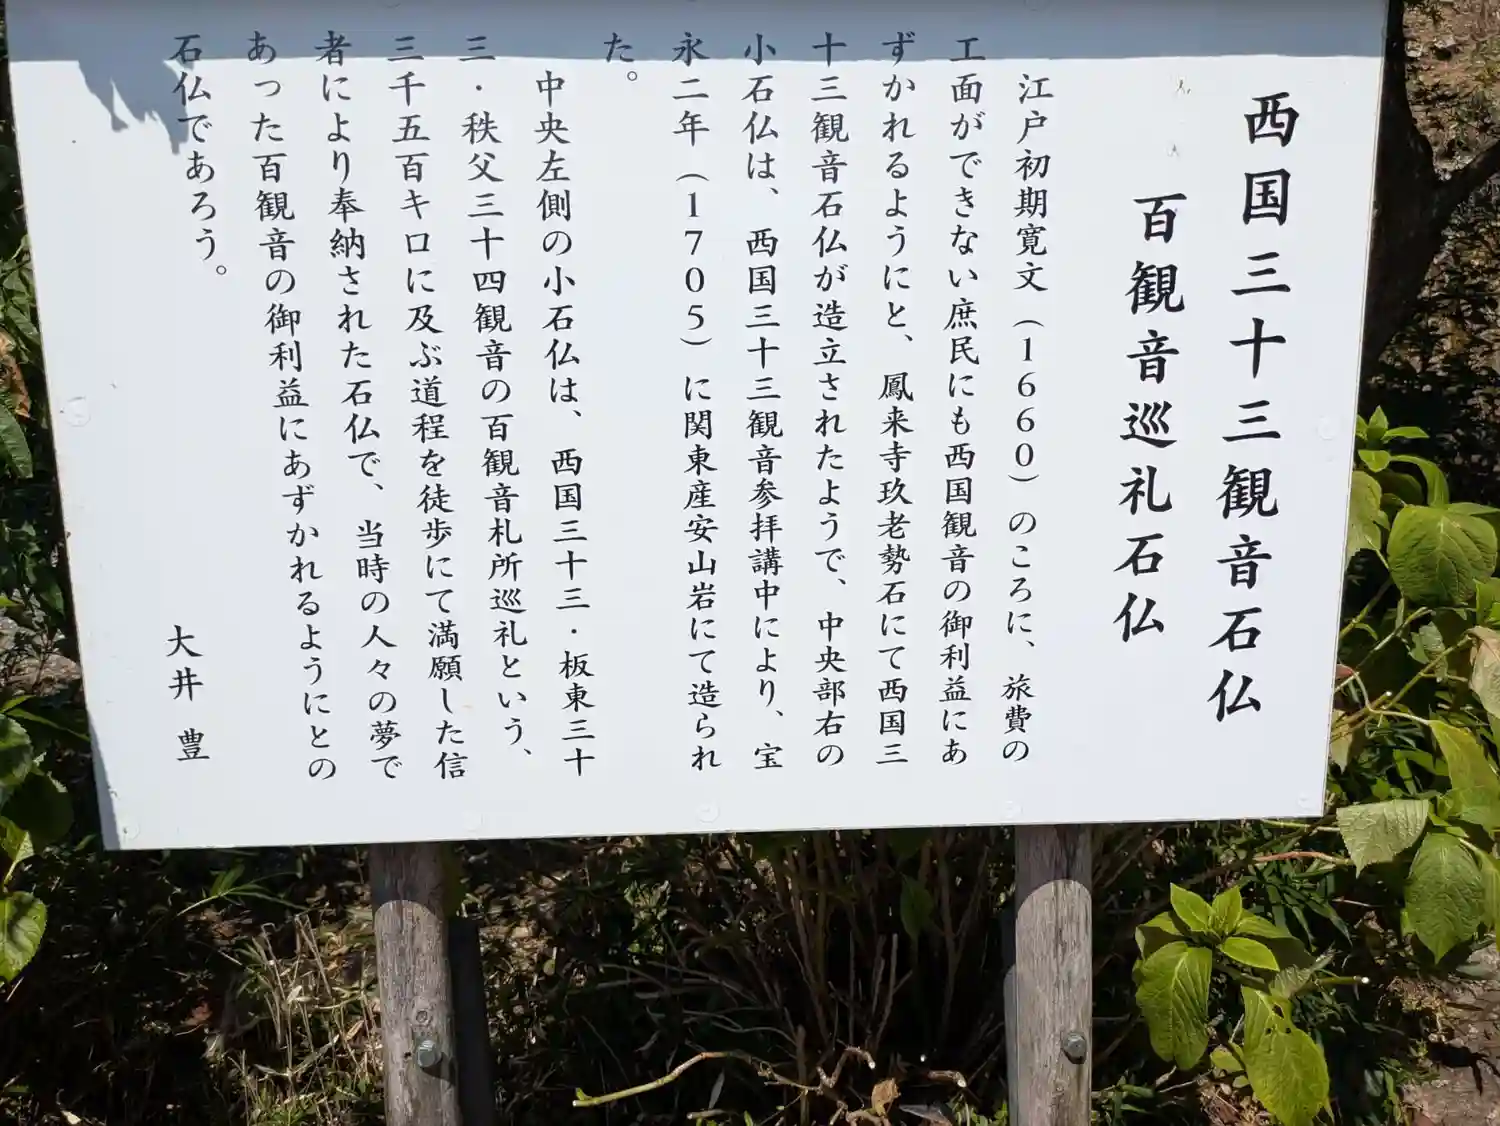 西国三十三観音石仏
百観音巡礼石仏
江戸初期寛文（1660）のころに、旅費の
工面ができない庶民にも西国観音の御利益にあ
ずかれるようにと、鳳来寺玖老勢石にて西国三
十三観音石仏が造立されたようで、中央部右の
小石仏は、西国三十三観音参拝講中により、宝
永二年（1705）に関東産安山岩にて造られ
た。
中央左側の小石仏は、西国三十三・板東三十
三・秩父三十四観音の百観音札所巡礼という、
三千五百キロに及ぶ道程を徒歩にて満願した信
者により奉納された石仏で、当時の人々の夢で
あった百観音の御利益にあずかれるようにとの
石仏であろう。
大井 豊